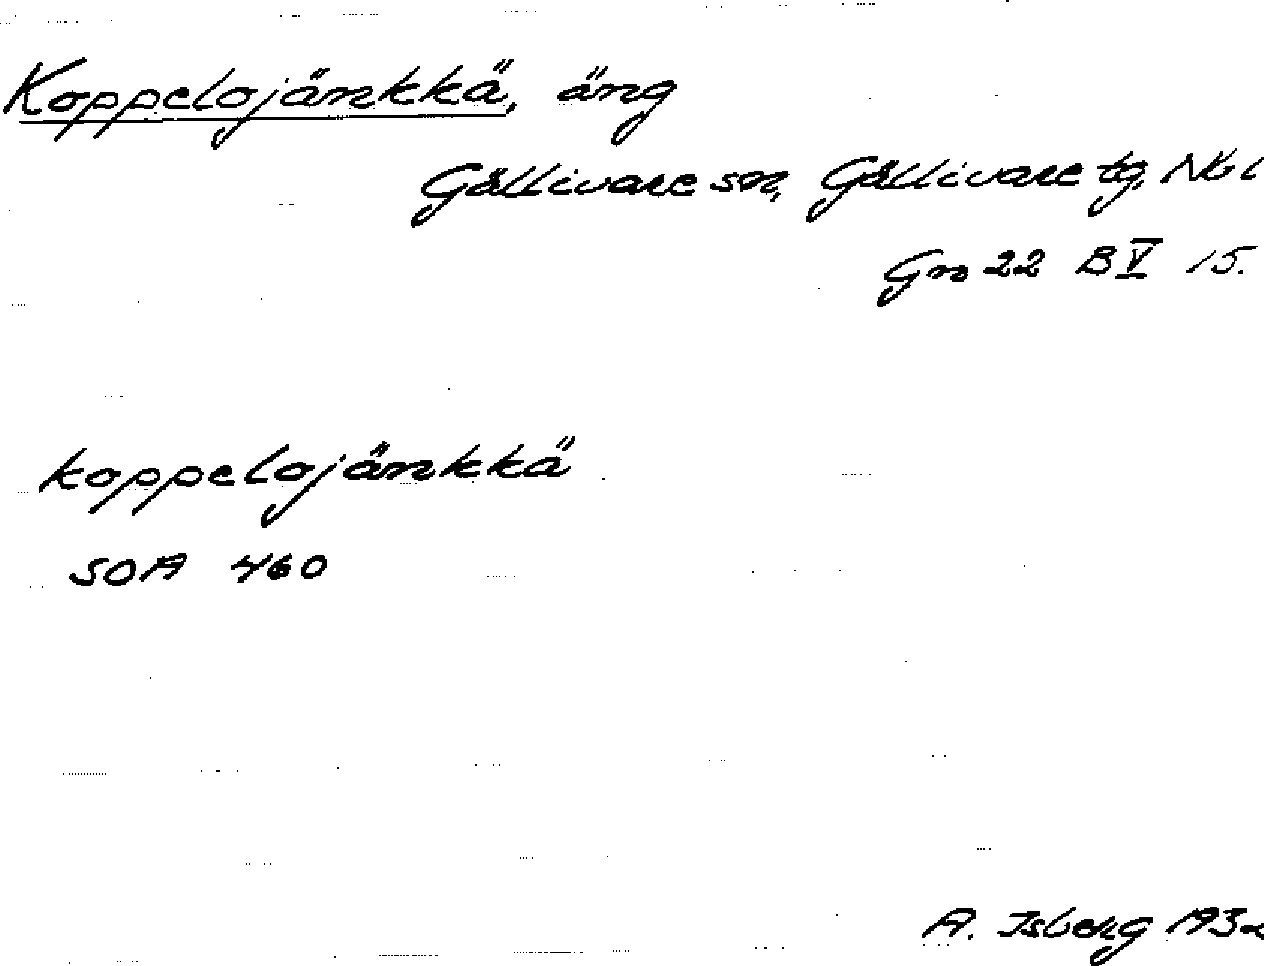 Koppelojänkkä, äng
Gällivare sn, Gällivare tg, Nbl
Gm 22 B V 15.
koppelojänkkä
SOA 460
A. Isberg 1932